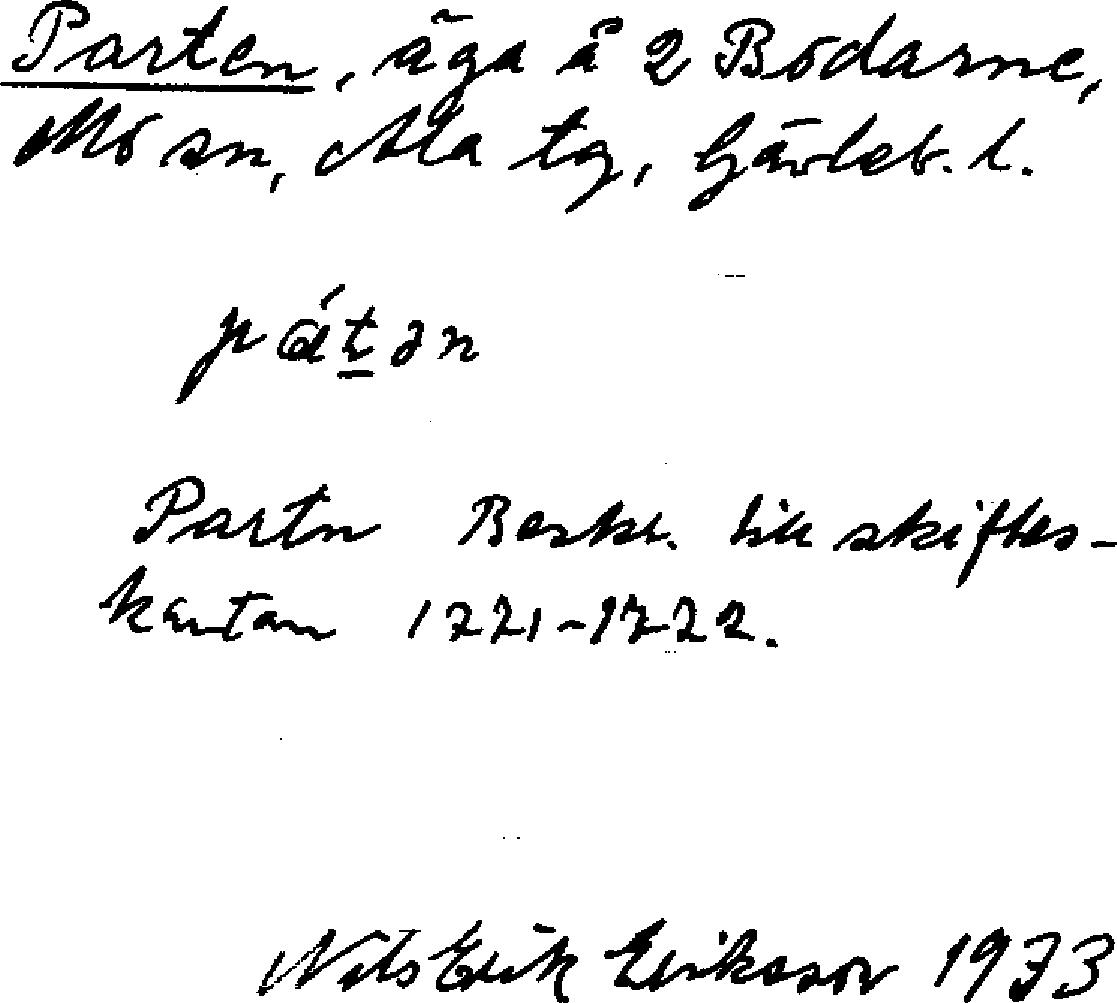 Parten, äga å 2 Bodarne,
Mo sn, Ala tg, Gävleb. l.
pɑ́t̲ən
Partn Beskr. till skiftes-
kartan 1771-1772.
Nils Erik Eriksson 1973